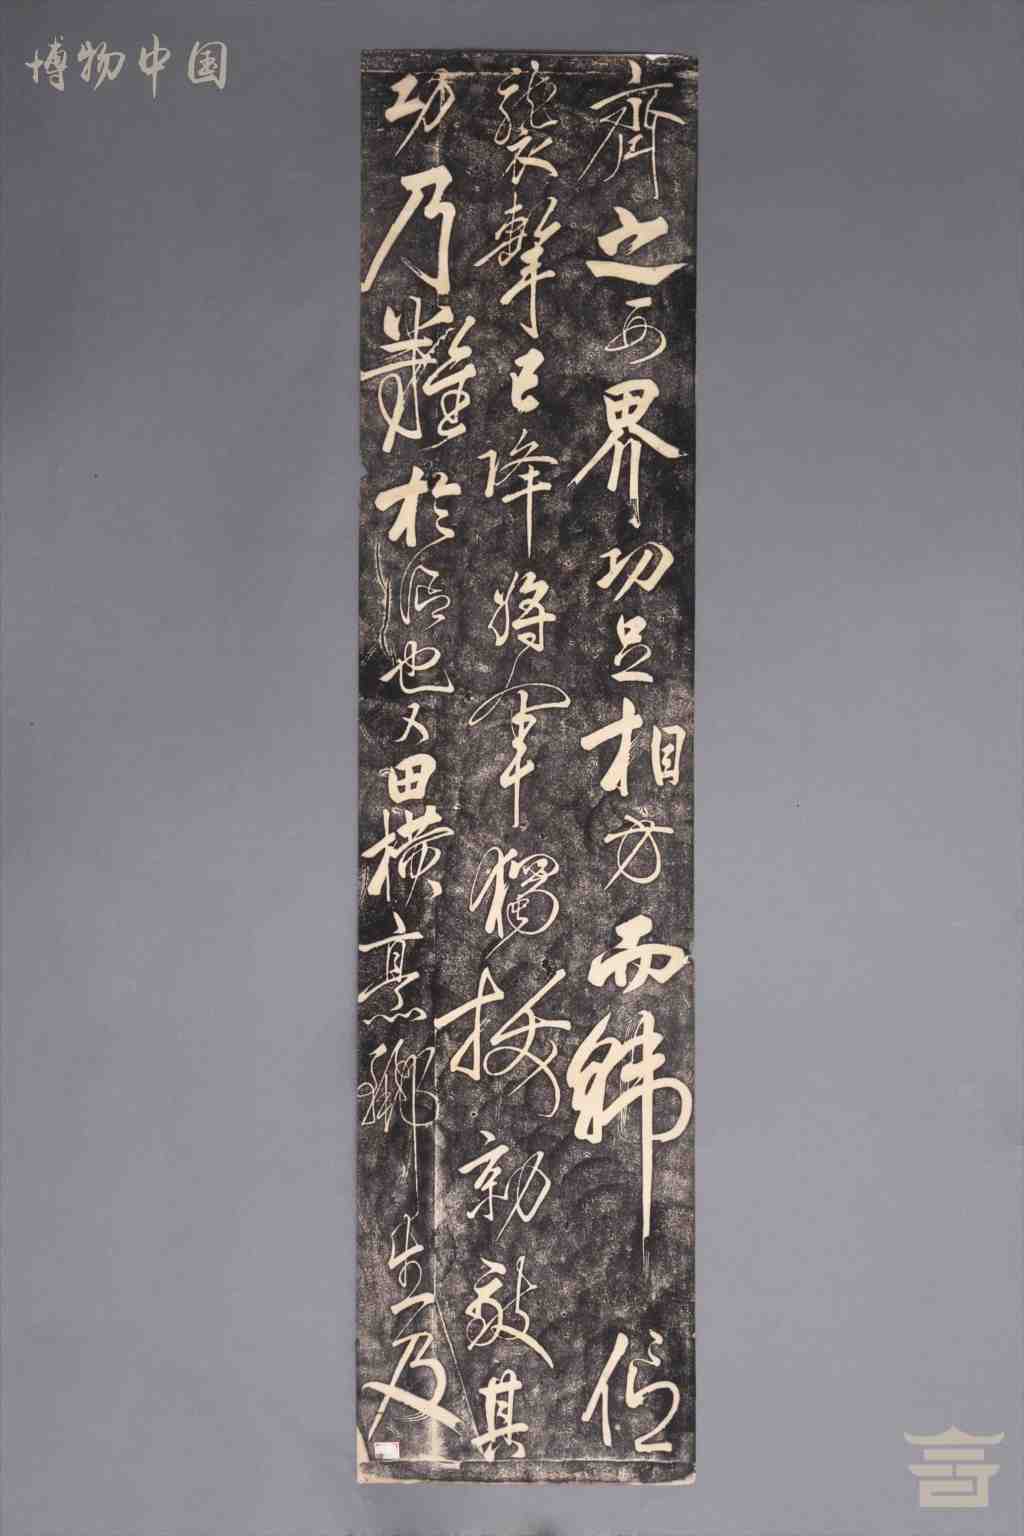 博物中国
齊之西界功足相方而韓信
襲擊已降將軍獨拔勍敵其
功乃難於信也又田橫烹酈生及